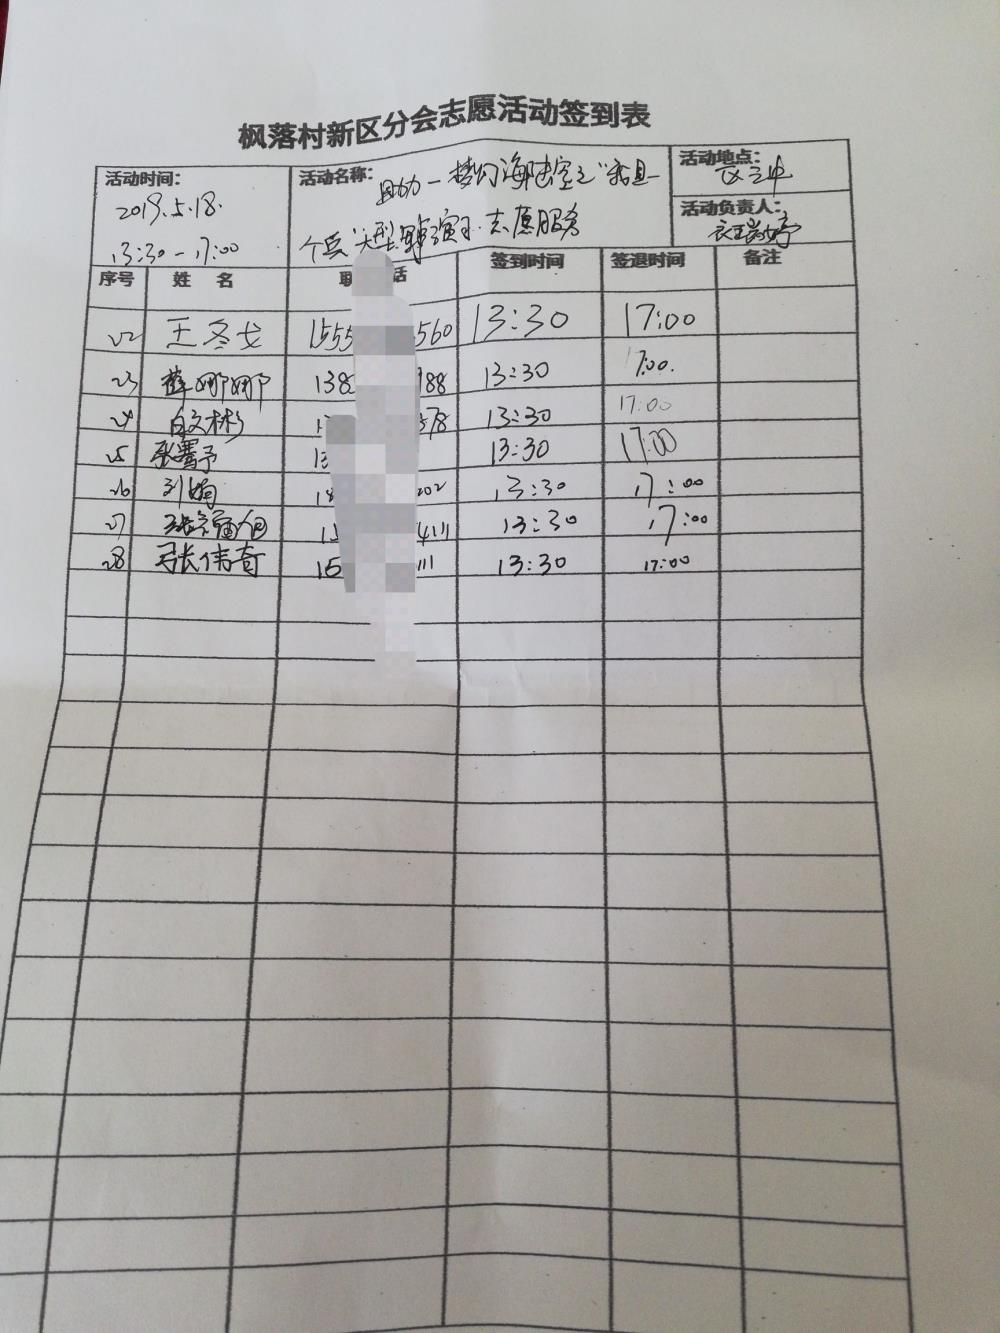 枫落村新区分会志愿活动签到表
活动时间： 活动名称： 活动地点：
2019.5.18. 助力一梦幻海陆空之"我是
13:30-17:00 个兵"大型 演习.志愿服务
活动负责人：
序号 姓 名 联 话 签到时间 签退时间 备注
22 王冬 1555 560 13:30 17:00
23 薛娜娜 138 188 13:30 17:00.
24 白文彬 1 78 13:30 17:00
25 张 予 13 13:30 17:00
26 刘娟 1 202 13:30 17:00
27 1 4111 13:30 17:00
28 张伟奇 15 111 13:30 17:00